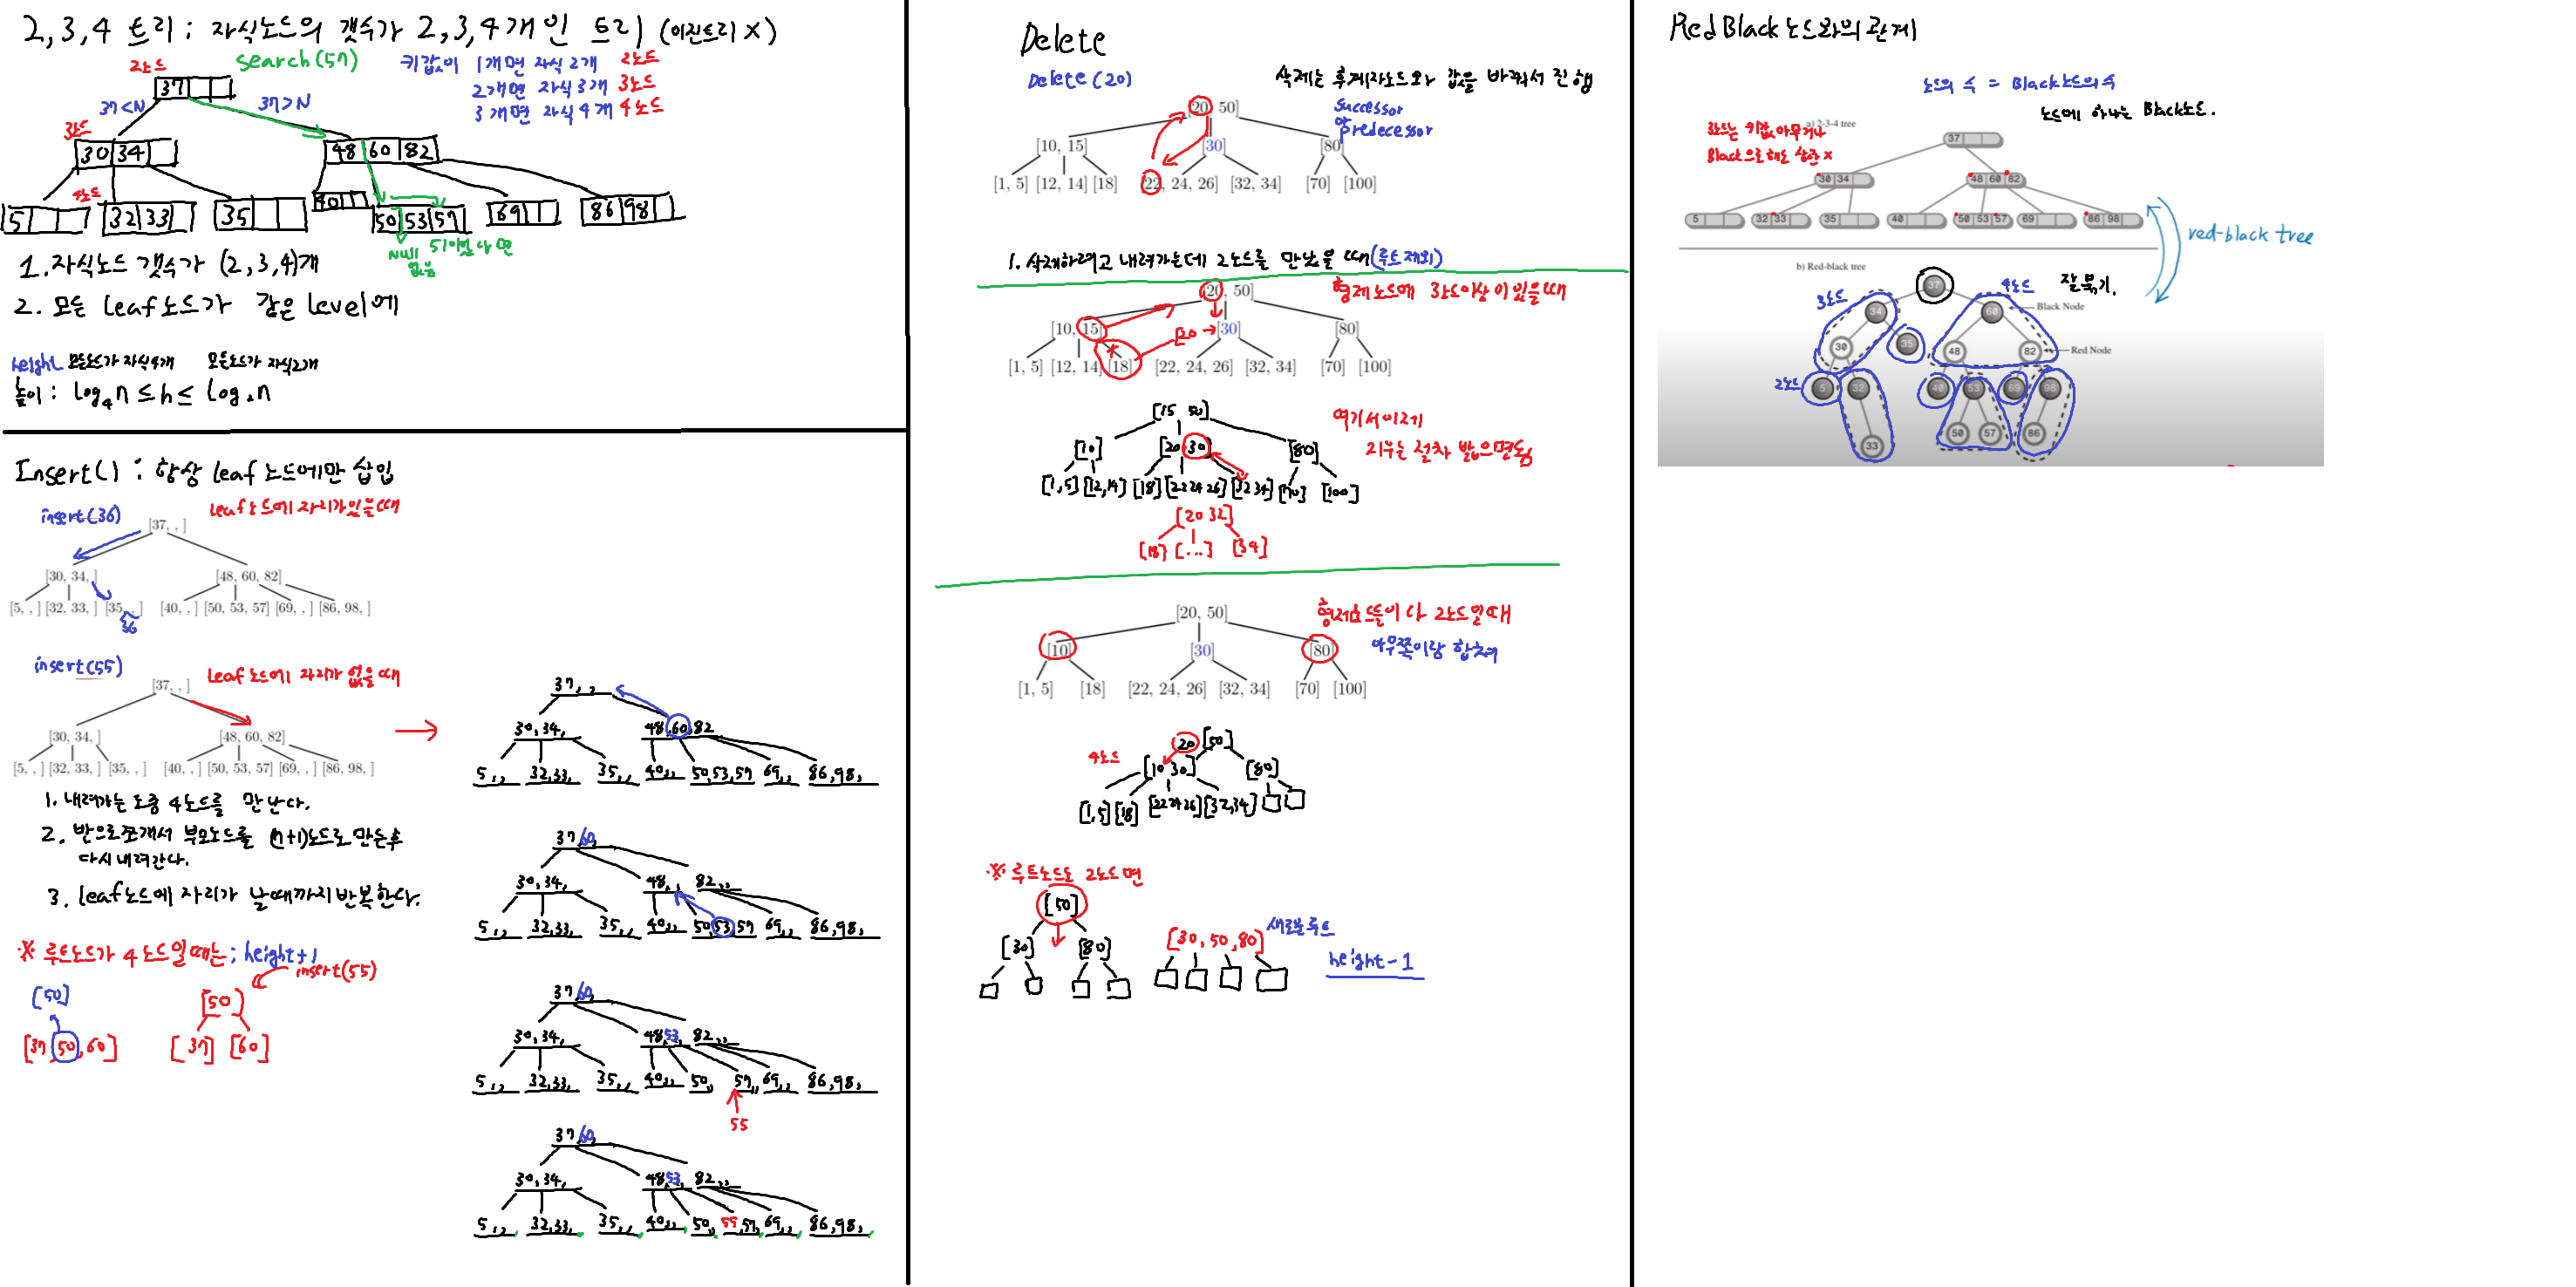 2,3,4 트리 : 자식노드의 갯수가 2,3,4개인 트리 (이진트리 X)
search(57)
2노드
37
37<N
37>N
키값이 1개면 자식2개 2노드
2개면 자식3개 3노드
3개면 자식4개 4노드
3노드
30 34
48 60 82
2노드
5
32 33
35
40
50 53 57
69
86 98
Null 없음
51이었다면
1. 자식노드 갯수가 (2,3,4)개
2. 모든 leaf노드가 같은 level에
height 모든노드가 자식4개 모든노드가 자식2개
높이 : log₄n ≤ h ≤ log₂n
Insert() : 항상 leaf 노드에만 삽입
insert(36)
leaf노드에 자리가있을때
[37, , ]
[30, 34, ] [48, 60, 82]
[5, , ] [32, 33, ] [35, , ] [40, , ] [50, 53, 57] [69, , ] [86, 98, ]
36
insert(55)
leaf노드에 자리가 없을때
[37, , ]
[30, 34, ] [48, 60, 82]
[5, , ] [32, 33, ] [35, , ] [40, , ] [50, 53, 57] [69, , ] [86, 98, ]
1. 내려가는 도중 4노드를 만난다.
2. 반으로쪼개서 부모노드를 (n+1)노드로 만든후
다시내려간다.
3. leaf노드에 자리가 날때까지반복한다.
※ 루트노드가 4노드일때는; height+1
insert(55)
[50]
[37, 50, 60]
[50]
[37] [60]
37, ,
30,34, 48,60,82
5,, 32,33, 35,, 40,, 50,53,57 69,, 86,98,
37,60,
30,34, 48,, 82,,
5,, 32,33, 35,, 40,, 50,53,57 69,, 86,98,
37,60,
30,34, 48,53, 82,,
5,, 32,33, 35,, 40,, 50,, 57,, 69,, 86,98,
55
37,60,
30,34, 48,53, 82,,
5,, 32,33, 35,, 40,, 50,, 55,57, 69,, 86,98,
Delete
Delete(20)
삭제는 후계자노드와 값을 바꿔서 진행
Successor
or
predecessor
[20, 50]
[10, 15] [30] [80]
[1, 5] [12, 14] [18] [22, 24, 26] [32, 34] [70] [100]
1. 삭제하려고 내려가는데 2노드를 만났을 때(루트제외)
형제노드에 3노드이상이있을때
[20, 50]
[10, 15] [20 → [30] [80]
[1, 5] [12, 14] [18] [22, 24, 26] [32, 34] [70] [100]
[15 50]
[10] [20 30] [80]
[1,5] [12,14] [18] [22 24 26] [32 34] [70] [100]
여기서이제
지우는 절차 밟으면됨
[20 32]
[18] [...] [34]
[20, 50]
형제노드들이 다 2노드일때
아무쪽이랑 합쳐
[10] [30] [80]
[1, 5] [18] [22, 24, 26] [32, 34] [70] [100]
20 [50]
4노드
[10 30] [80]
[1,5] [18] [22 24 26] [32,34]
※ 루트노드도 2노드면
[50]
[30] [80]
[30, 50, 80] 새로운루트
height-1
Red Black 노드와의 관계
노드의 수 = Black노드의수
노드에 하나는 Black노드.
3노드는 키값 아무거나
Black으로해도 상관 X
a) 2-3-4 tree
37
30 34
48 60 82
5
32 33
35
40
50 53 57
69
86 98
red-black tree
b) Red-black tree
37
잘 묶기.
3노드
4노드
34
60
Black Node
30
35
48
82
Red Node
2노드
5
32
40
53
69
98
33
50
57
86